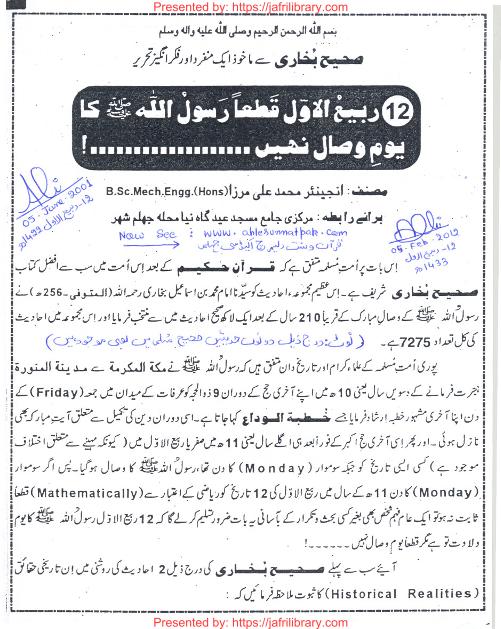 Presented by: https://jafrilibrary.com
بسم الله الرحمن الرحیم وصلی الله علیہ والہ وسلم
صحیح بُخاری سے ماخوذ ایک منفرد اور فکر انگیز تحریر
12 ربیعُ الاوّل قَطعاً رَسولُ اللّٰه ﷺ کا
یومِ وصال نہیں ..................!
مصنف : انجینئر محمد علی مرزا B.Sc.Mech.Engg.(Hons)
05-June-2001
برائے رابطہ : مرکزی جامع مسجد عید گاہ نیا محلہ جھلم شھر
Now See : www.ahlesunnatpak.com
05-Feb-2012
12-ربیع الاول
1433ھ
اِس بات پر اُمتِ مُسلمہ متفق ہے کہ قرآنِ حکیم کے بعد اِس اُمت میں سب سے افضل کتاب
صحیح بُخاری شریف ہے۔ اِس عظیم مجموعہ احادیث کو سیّدنا امام محمد بن اسماعیل بخاری رحمہ اللہ (المتوفی۔ 256ھ) نے
رسولُ اللہ ﷺ کے وصال مبارک کے قریباً 210 سال کے بعد ایک لاکھ صحیح احادیث میں سے منتخب فرمایا اور اِس مجموعہ میں احادیث
کی کل تعداد 7275 ہے۔ (نوٹ: درج ذیل دونوں حدیثیں صحیح مسلم میں بھی موجود ہیں)
پوری اُمتِ مُسلمہ کے علماء کرام اور تاریخ دان متفق ہیں کہ رسولُ اللہ ﷺ نے مکۃ المکرمۃ سے مدینۃ المنورۃ
ہجرت فرمانے کے دسویں سال یعنی 10ھ میں اپنے آخری حج کے دوران 9 ذوالحجہ کو عرفات کے میدان میں جمعہ (Friday) کے
دن اپنا آخری مشہور خطبہ ارشاد فرمایا جسے خطبۃ الوداع کہا جاتا ہے۔ اسی دوران دین کی تکمیل سے متعلق آیتِ مبارکہ بھی
نازل ہوئی۔ اور پھر اِسی آخری حج اکبر کے فوراً بعد ہی اگلے سال یعنی 11ھ میں صفر یا ربیع الاوّل میں (کیونکہ مہینے سے متعلق اختلاف
موجود ہے) کسی ایسی تاریخ کو جبکہ سوموار (Monday) کا دن تھا، رسولُ اللہ ﷺ کا وصال ہو گیا۔ پس اگر سوموار
(Monday) کا دن 11ھ کے سال میں ربیع الاوّل کی 12 تاریخ کو ریاضی کے اعتبار سے (Mathematically) قطعاً
ثابت نہ ہو تو ایک عام فہم شخص بھی بغیر کسی بحث و تکرار کے بآسانی یہ بات ضرور تسلیم کرلے گا کہ 12 ربیع الاوّل رسولُ اللہ ﷺ کا یومِ
ولادت تو ہے مگر قطعاً یومِ وصال نہیں ۔۔۔۔۔۔!
آیئے سب سے پہلے صحیح بخاری کی درج ذیل 2 احادیث کی روشنی میں اِن تاریخی حقائق
(Historical Realities) کا ثبوت ملاحظہ فرمائیں کہ :
Presented by: https://jafrilibrary.com